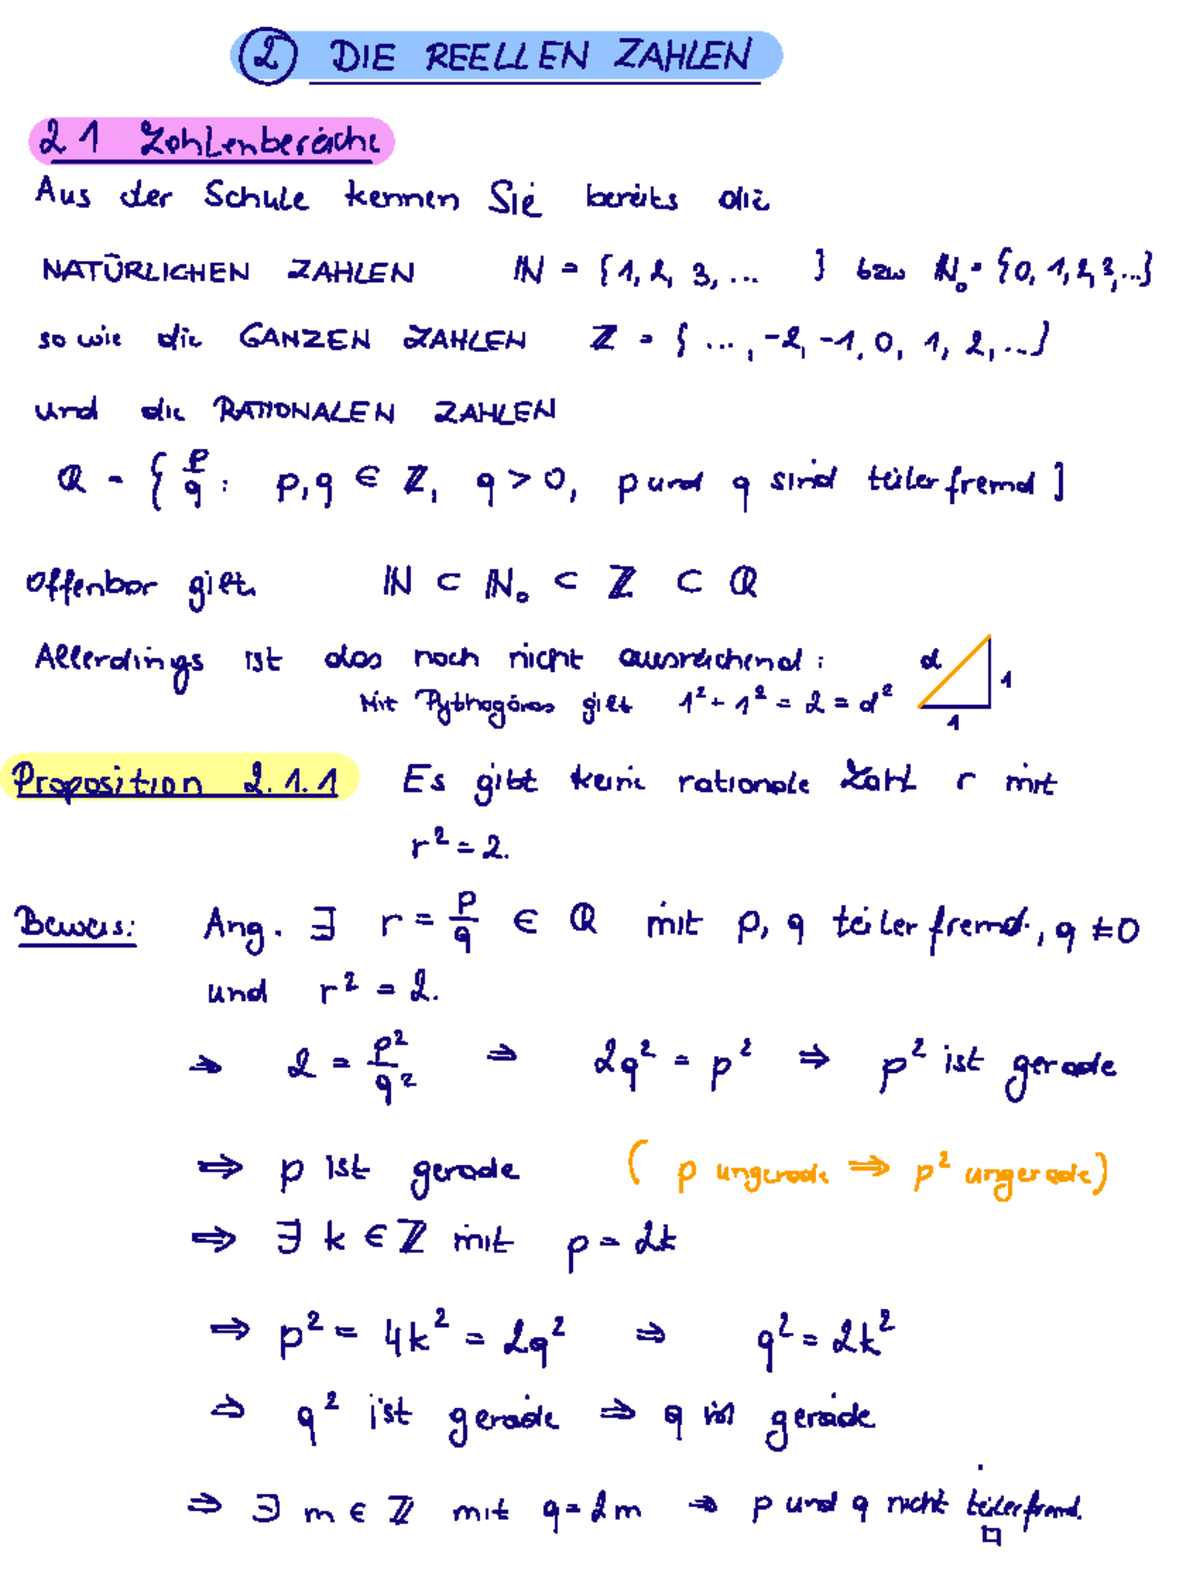 ② DIE REELLEN ZAHLEN
2.1 Zahlenbereiche
Aus der Schule kennen Sie bereits die
NATÜRLICHEN ZAHLEN ℕ = {1, 2, 3, ... } bzw ℕ₀ = {0, 1, 2, 3, ...}
sowie die GANZEN ZAHLEN ℤ = { ..., -2, -1, 0, 1, 2, ...}
und die RATIONALEN ZAHLEN
ℚ = { p/q : p, q ∈ ℤ, q > 0, p und q sind teilerfremd }
Offenbar gilt. ℕ ⊂ ℕ₀ ⊂ ℤ ⊂ ℚ
Allerdings ist das noch nicht ausreichend: d 1
Mit Pythagoras gilt 1² + 1² = 2 = d² 1
Proposition 2.1.1 Es gibt keine rationale Zahl r mit
r² = 2.
Beweis: Ang. ∃ r = p/q ∈ ℚ mit p, q teilerfremd., q ≠ 0
und r² = 2.
⇒ 2 = p²/q² ⇒ 2q² = p² ⇒ p² ist gerade
⇒ p ist gerade ( p ungerade ⇒ p² ungerade)
⇒ ∃ k ∈ ℤ mit p = 2k
⇒ p² = 4k² = 2q² ⇒ q² = 2k²
⇒ q² ist gerade ⇒ q ist gerade
⇒ ∃ m ∈ ℤ mit q = 2m ⇒ p und q nicht teilerfremd.
□